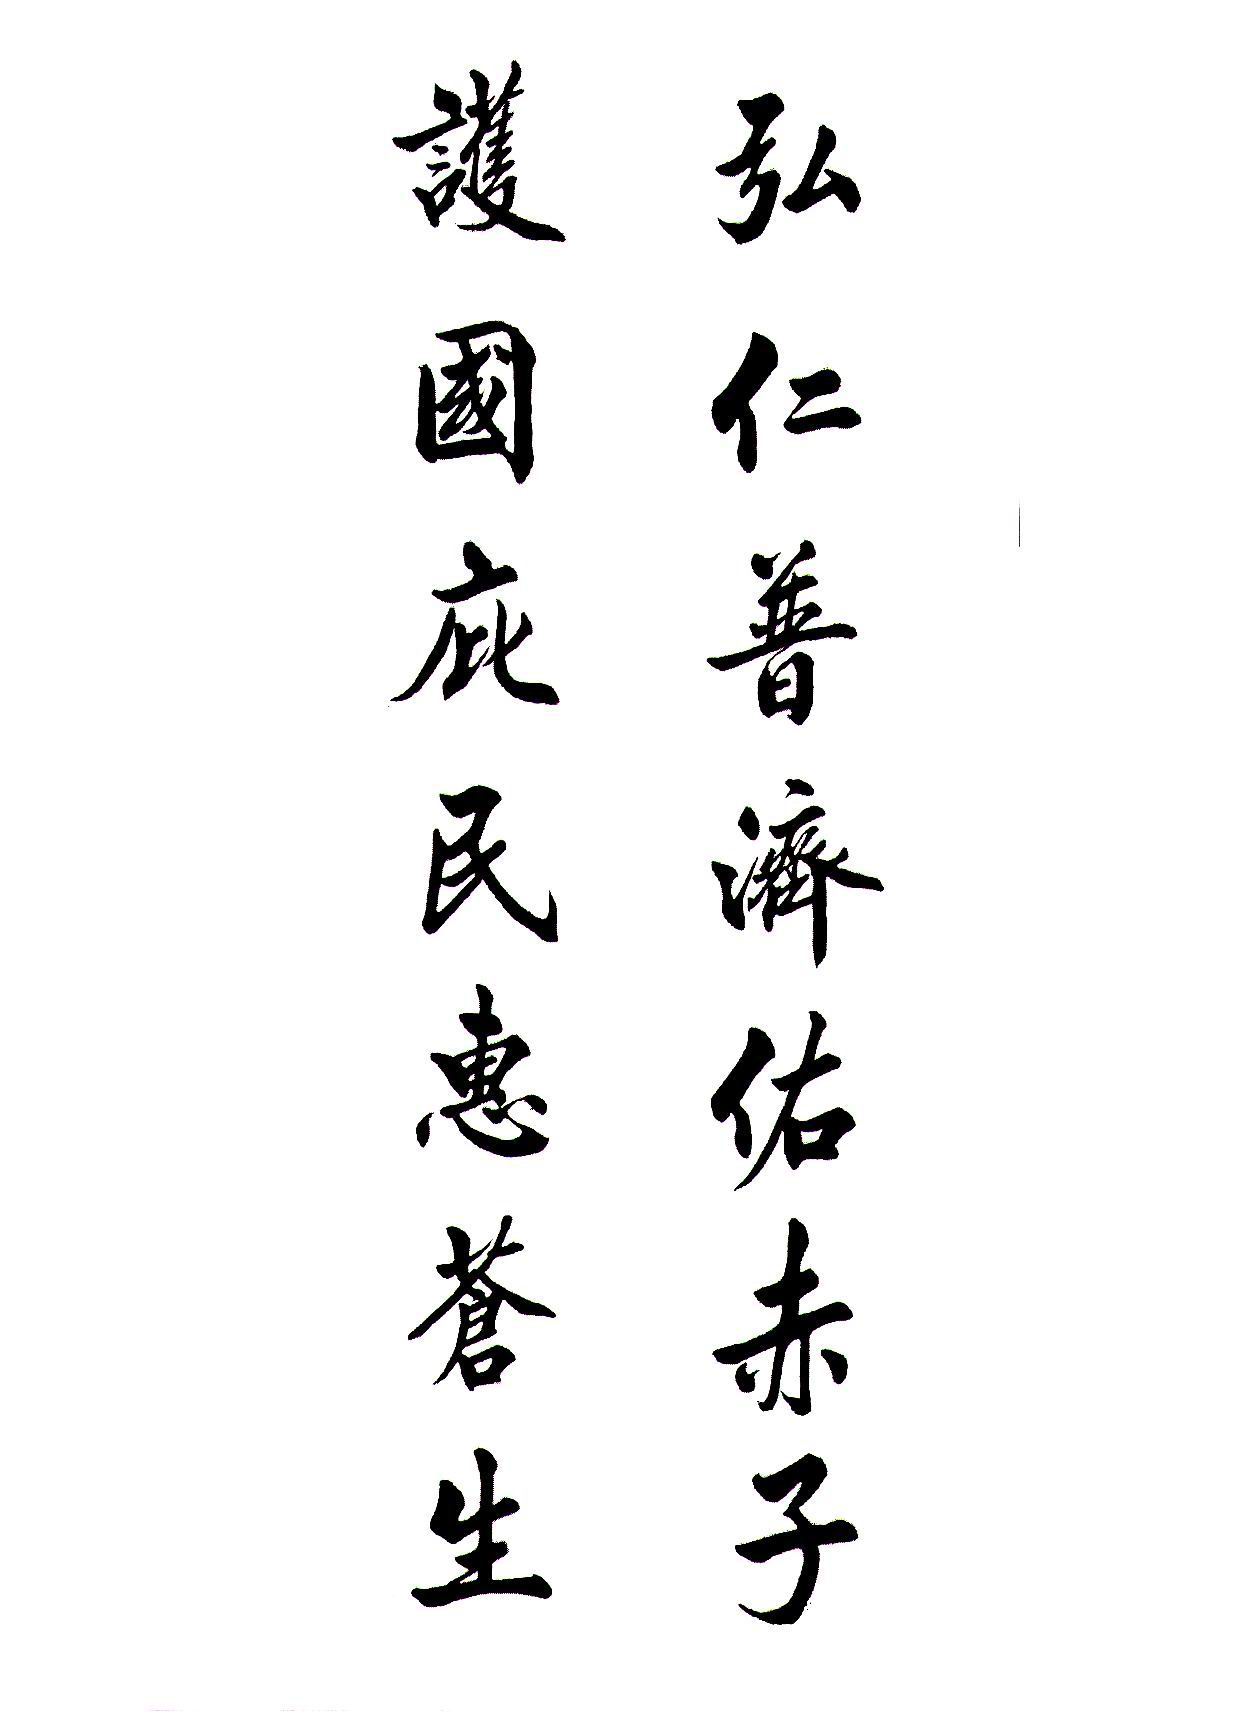 弘仁普濟佑赤子
護國庇民惠蒼生